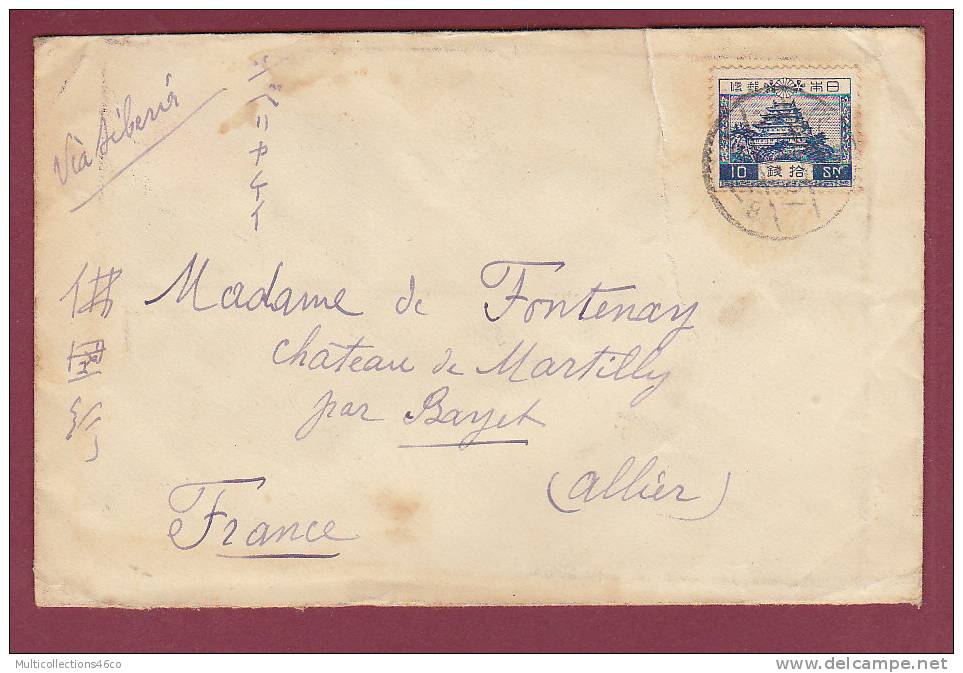 Via Siberia
シベリヤケイ
日本郵便
10 拾銭 SN
佛国行
Madame de Fontenay
Chateau de Martilly
par Bayet
(Allier)
France
Multicollections46co
http://www.delcampe.net